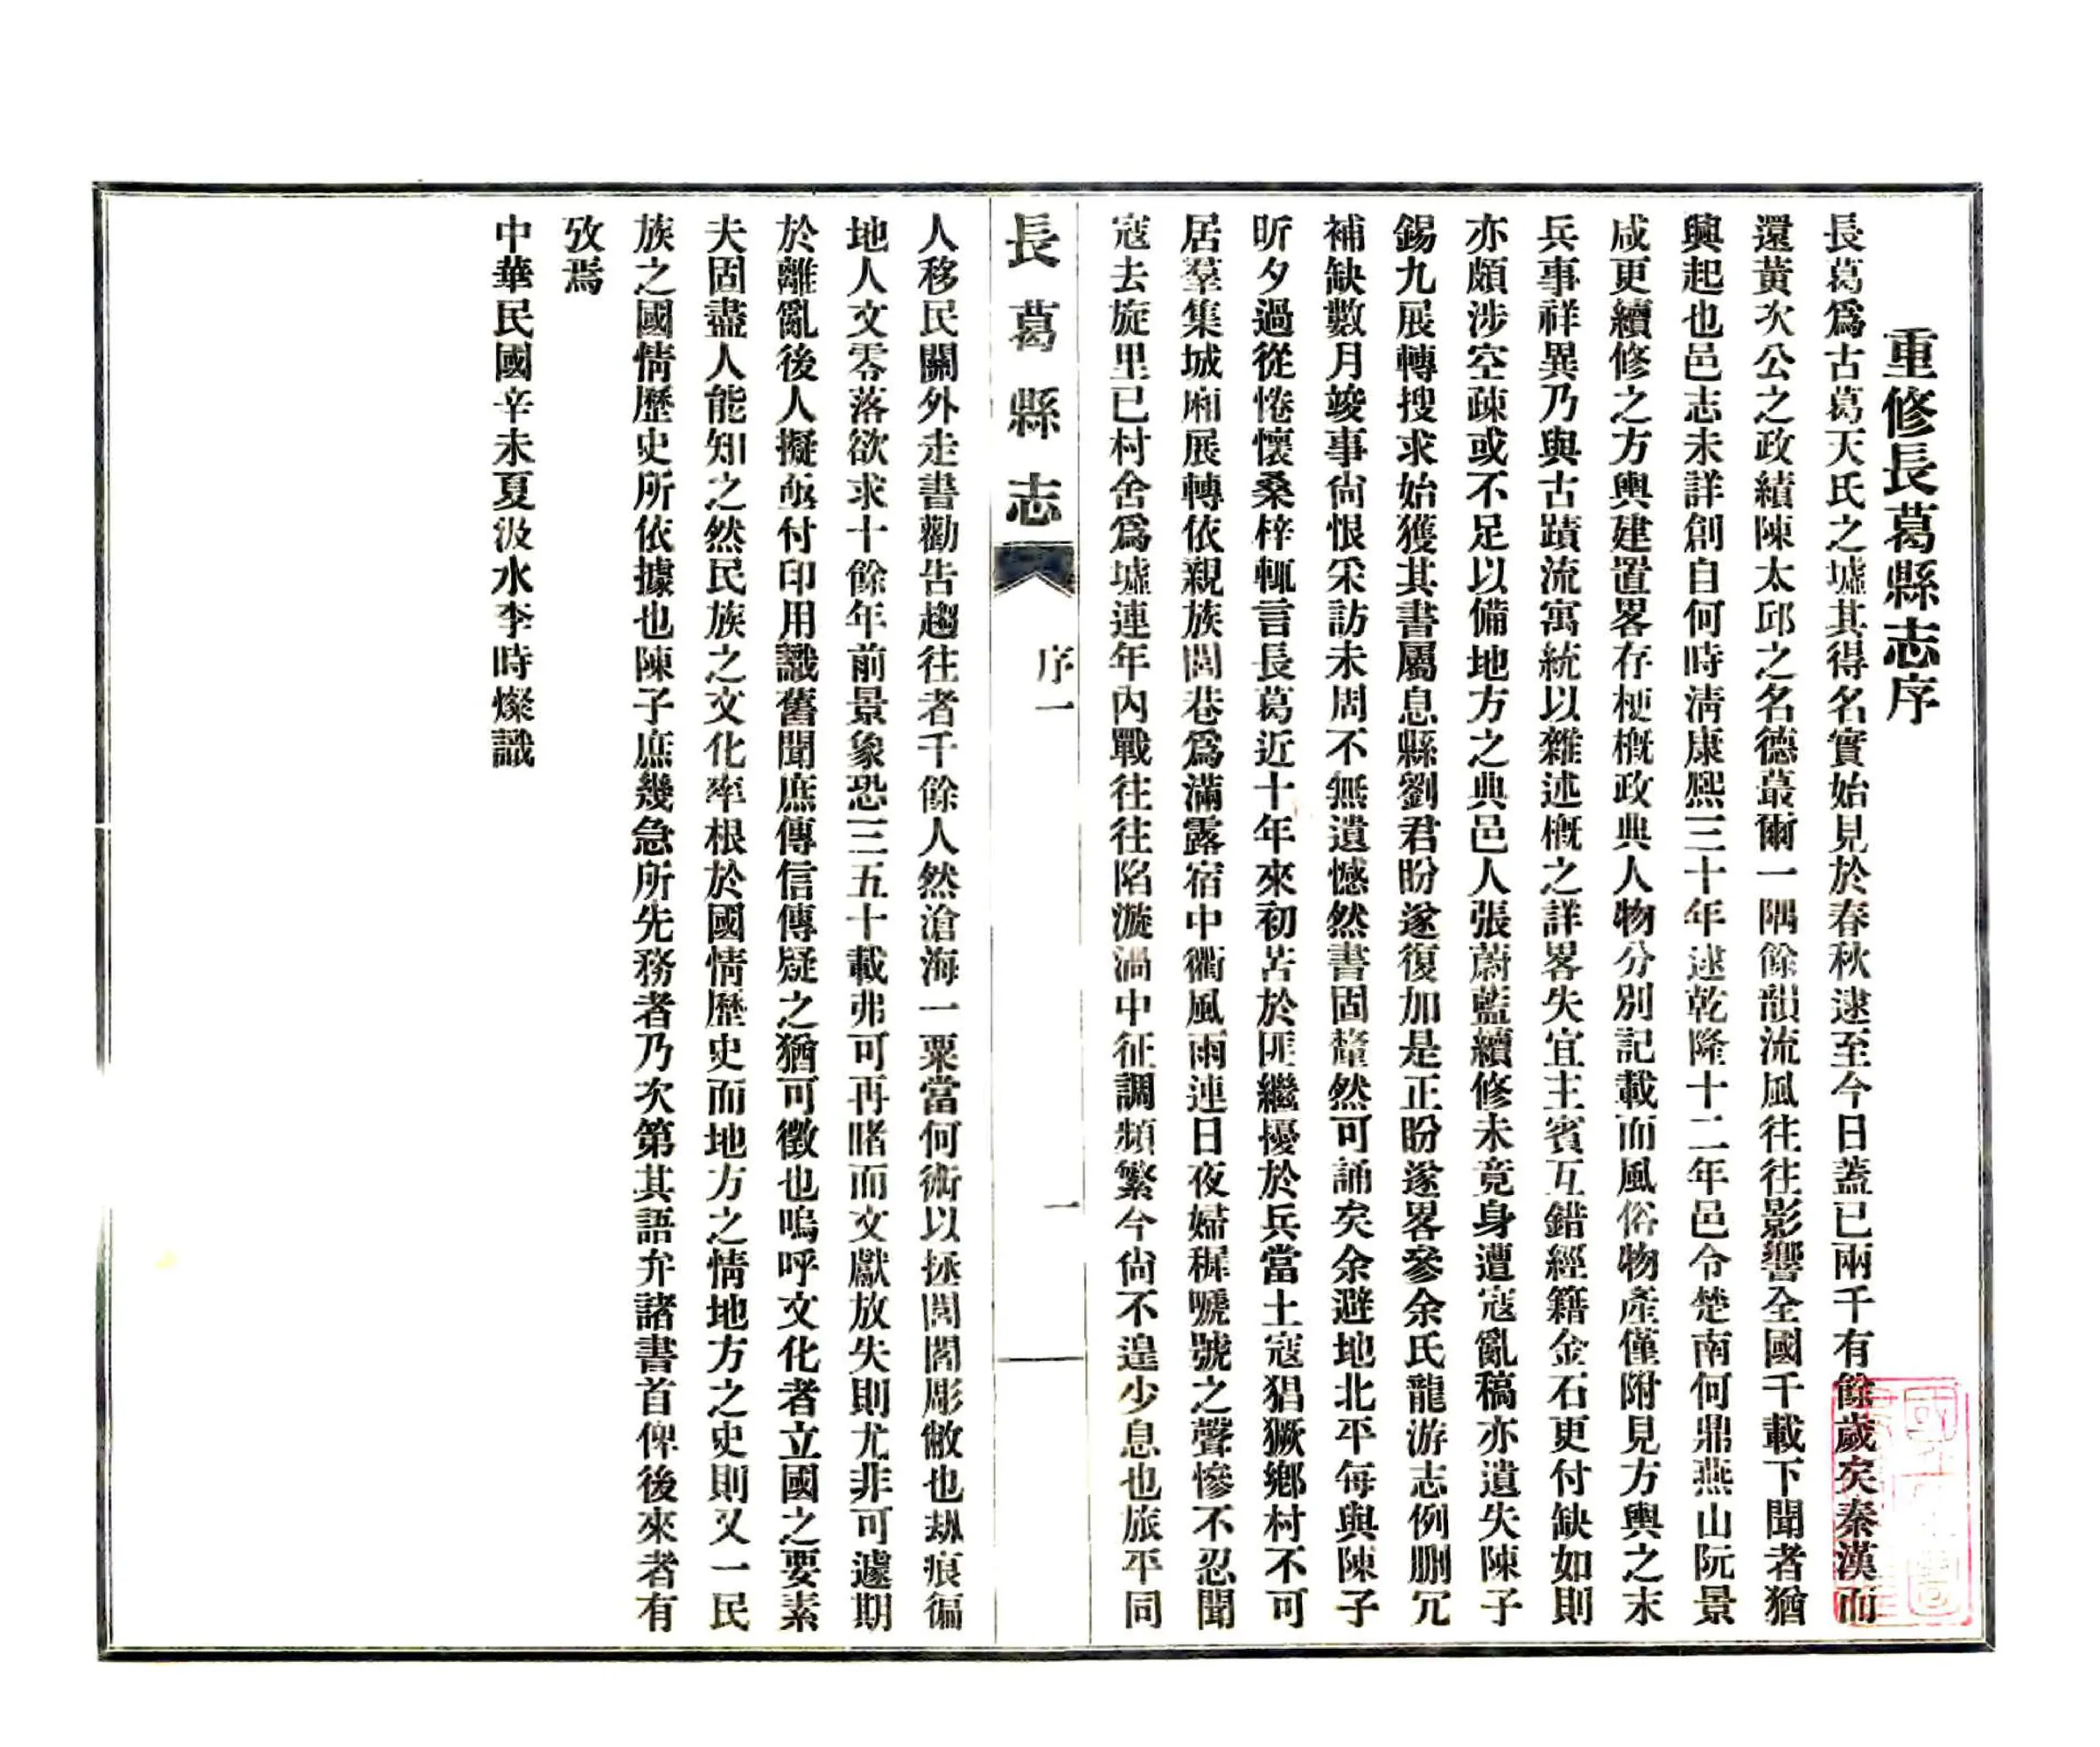 重修長葛縣志序
長葛爲古葛天氏之墟其得名實始見於春秋逮至今日蓋已兩千有餘歲矣秦漢而
還黃次公之政績陳太邱之名德蕞爾一隅餘韻流風往往影響全國千載下聞者猶
興起也邑志未詳創自何時淸康熙三十年逮乾隆十二年邑令楚南何鼎燕山阮景
咸更續修之方輿建置畧存梗槪政典人物分別記載而風俗物產僅附見方輿之末
兵事祥異乃與古蹟流寓統以雜述槪之詳畧失宜主賓互錯經籍金石更付缺如則
亦頗涉空疎或不足以備地方之典邑人張蔚藍續修未竟身遭寇亂稿亦遺失陳子
錫九展轉搜求始獲其書屬息縣劉君盼遂復加是正盼遂畧參余氏龍游志例删冗
補缺數月竣事尙恨采訪未周不無遺憾然書固釐然可誦矣余避地北平每與陳子
昕夕過從惓懷桑梓輒言長葛近十年來初苦於匪繼擾於兵當土寇猖獗鄉村不可
居羣集城廂展轉依親族閭巷爲滿露宿中衢風雨連日夜婦穉嗁號之聲慘不忍聞
寇去旋里已村舍爲墟連年內戰往往陷漩渦中征調頻繁今尙不遑少息也旅平同
長葛縣志
序一
一
人移民關外走書勸告趨往者千餘人然滄海一粟當何術以拯閭閻彫敝也刼痕徧
地人文零落欲求十餘年前景象恐三五十載弗可再睹而文獻放失則尤非可遽期
於離亂後人擬亟付印用識舊聞庶傳信傳疑之猶可徵也嗚呼文化者立國之要素
夫固盡人能知之然民族之文化率根於國情歷史而地方之情地方之史則又一民
族之國情歷史所依據也陳子庶幾急所先務者乃次第其語弁諸書首俾後來者有
攷焉
中華民國辛未夏汲水李時燦識